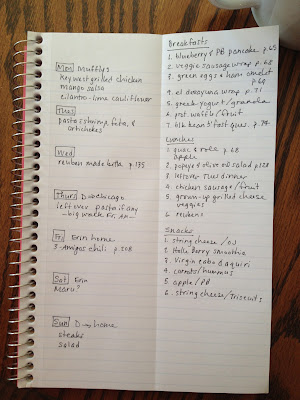 Mon Muffy's
Key west grilled chicken
mango salsa
cilantro-lime cauliflower
Tues
pasta & shrimp, feta, &
artichokes
Wed
reuben made p. 135
Thurs D → Chicago
leftover pasta if any
big walk Fri. Am
Fri Erin home
3-Amigos chili p. 308
Sat Erin
Maru?
Sun D → home
steaks
salad
Breakfasts
1. blueberry & PB pancake p. 65
2. veggie sausage wrap p. 68
3. green eggs & ham omelet
p. 69
4. el desayuno wrap p. 71
5. greek yogurt/granola
6. pbt waffle/fruit
7. blk bean b'fast ques. p. 74
Lunches
1. guac & role p. 68
apple
2. popeye & olive oil salad p. 128
3. leftover Tues dinner
4. chicken sausage/fruit
5. grown-up grilled cheese
veggies
6. reubens
Snacks
1. string cheese/OJ
2. Halle Berry smoothie
3. Virgin caba daquiri
4. carrots/hummus
5. apple/PB
6. string cheese/Triscuits